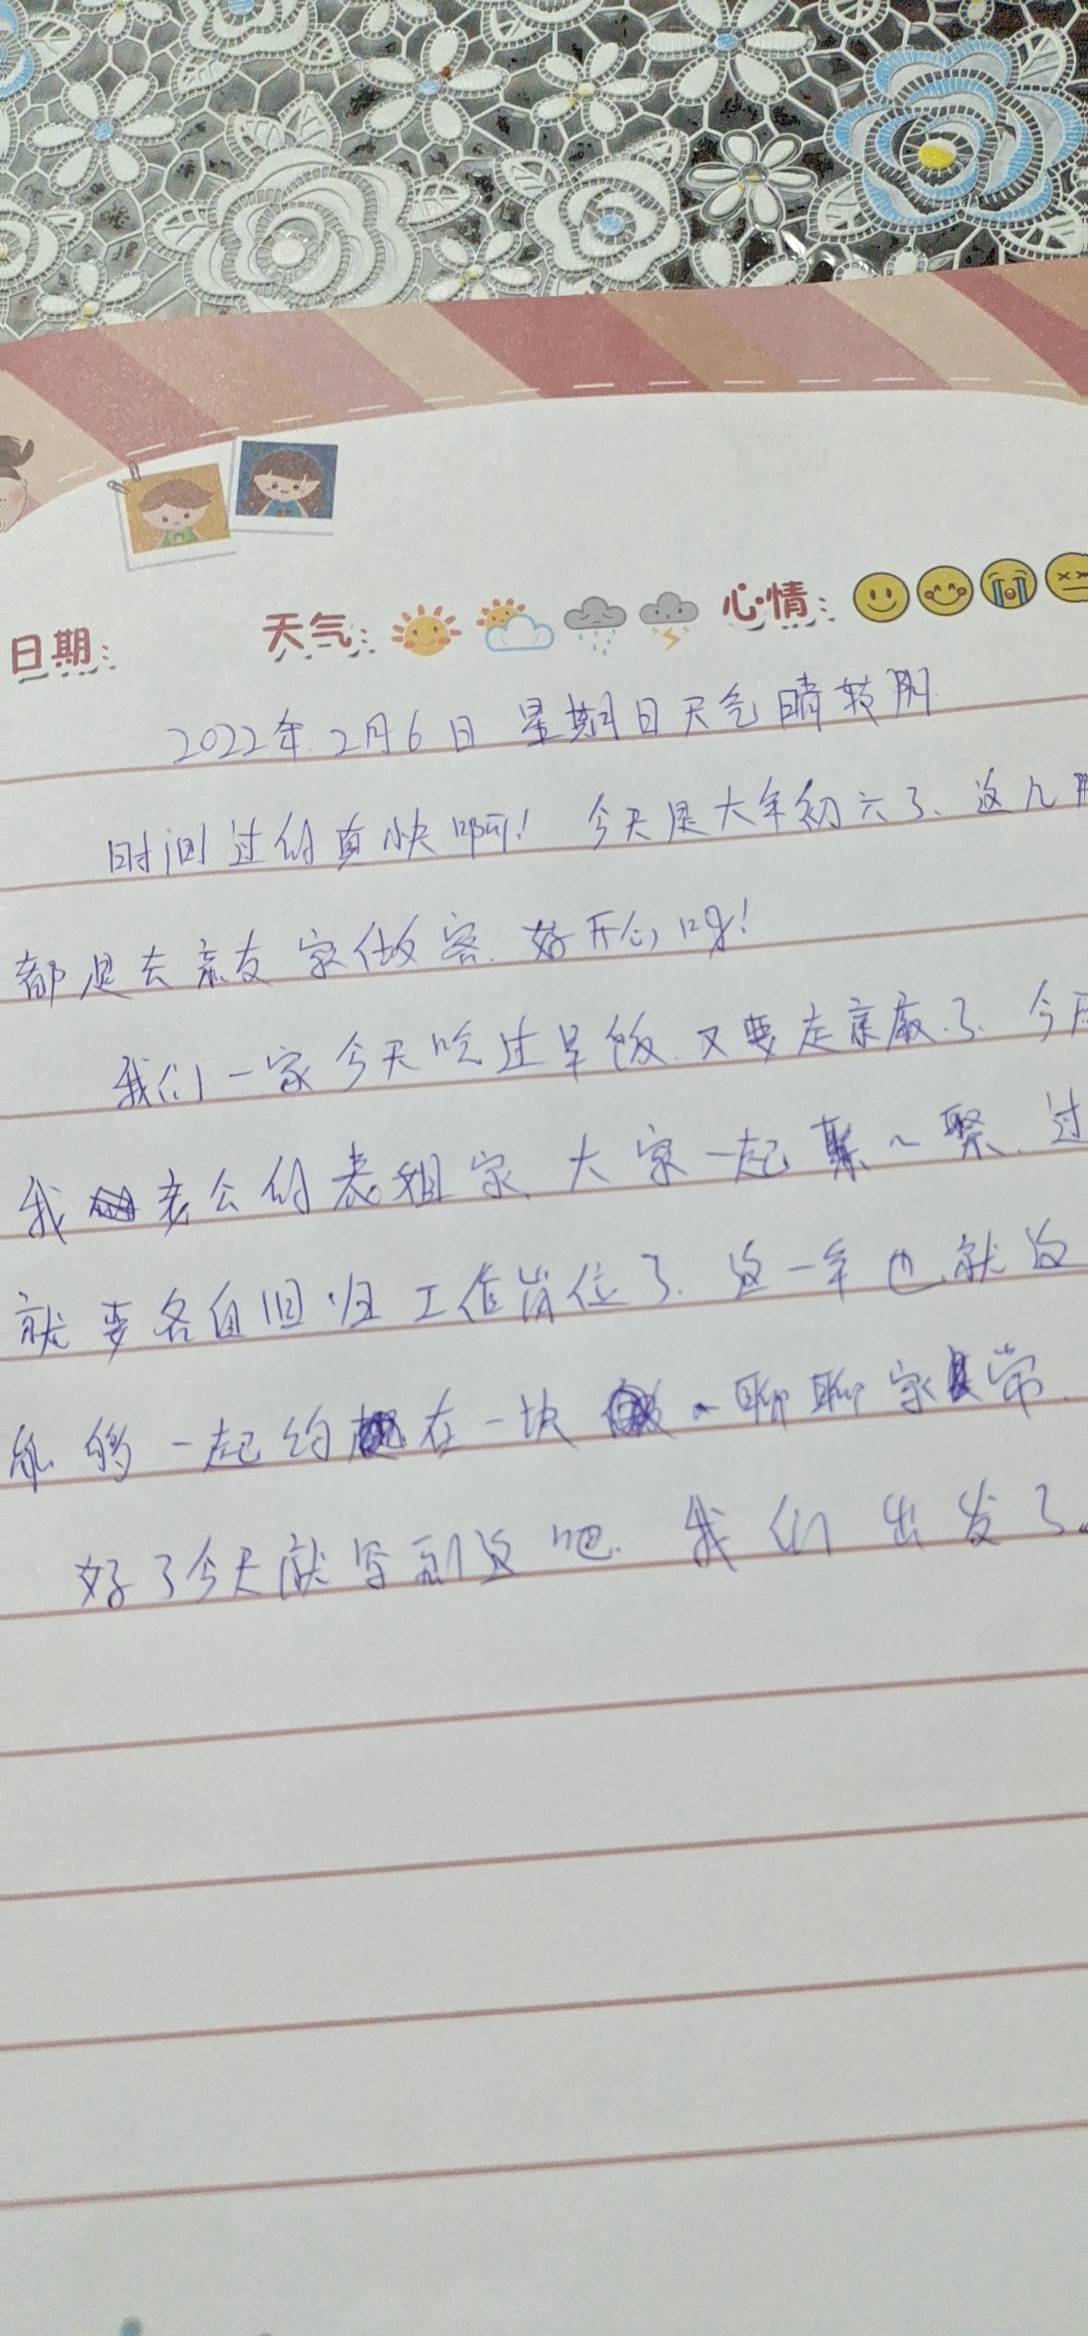 日期： 天气： 心情：
2022年.2月6日 星期日天气晴转阴.
时间过的真快啊！ 今天是大年初六了、这几
都是去亲友家做客.好开心呀！
我们一家今天吃过早饭.又要走亲戚.了、今天
我老公的表姐家.大家一起聚一聚.过
就要各自回归工作岗位了.这一年也就这
能够一起约在一块聊聊家常.
好了今天就写到这吧.我们出发了。